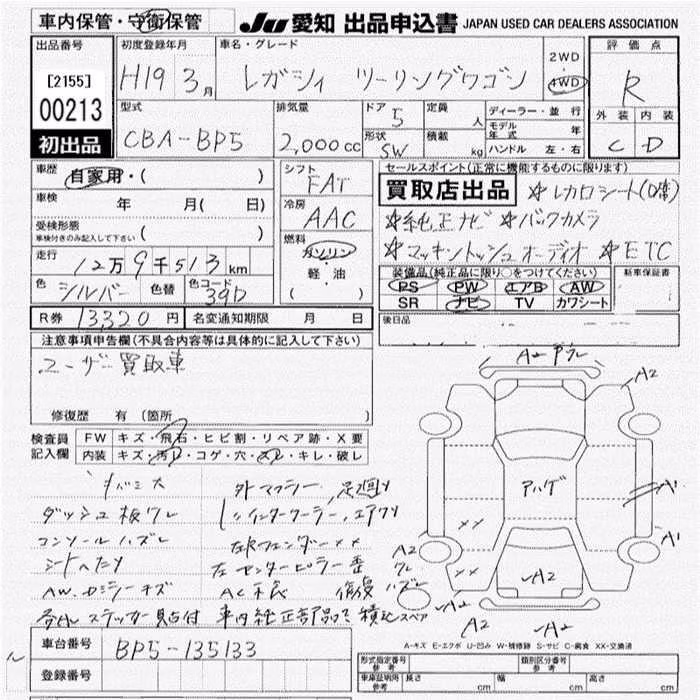 車内保管・守衛保管
JU 愛知 出品申込書 JAPAN USED CAR DEALERS ASSOCIATION
出品番号
[2155]
00213
初出品
初度登録年月
H19 3月
車名・グレード
レガシィ ツーリングワゴン
2WD
・
4WD
評価点
R
外装 内装
C D
型式
CBA-BP5
排気量
2,000cc
ドア 5
形状 SW
定員 人
積載 kg
ディーラー・並行
モデル年式 年
ハンドル 左・右
車歴
自家用・( )
車検 年 月( 日)
受検形態
車検付きのみ記入して下さい ( )
走行 12万9千513km
色 シルバー 色替 色コード 39D
シフト
FAT
冷房
AAC
燃料
ガソリン
・
軽・油
( )
セールスポイント(正常に機能するものに限ります)
買取店出品 ☆レカロシート(D席)
☆純正ナビ ☆バックカメラ
☆マッキントッシュオーディオ ☆ETC
装備品(純正品に限り○をつけてください)
PS PW エアB AW
SR ナビ TV カワシート
新車保証書
後日品
R券 13,320円 名変通知期限 月 日
注意事項申告欄(不具合内容等は具体的に記入して下さい)
ユーザー買取車
修復歴 有 (箇所 )
検査員記入欄
FW キズ・飛石・ヒビ割・リペア跡・X要
内装 キズ・汚レ・コゲ・穴・スレ・キレ・破レ
外マフラー、足廻り
ダッシュ板ワレ
インタークーラー、エアクリ
コンソールハズレ
左右フェンダーXX
シートヘタリ
左センターピラー歪
AW、
キズ
AC不良
ステッカー貼付 車内純正部品
積込スペア
A2
A2
アハゲ
A1
A1
A2
XX
XX
A2
A2
A2
A2
A-キズ E-エクボ U-凹み W-補修跡 S-サビ C-腐食 XX-交換済
車台番号 BP5-135133
登録番号
型式指定番号 参考 類別区分番号 参考
車庫証明用 参考 長さ cm 幅 cm 高さ cm